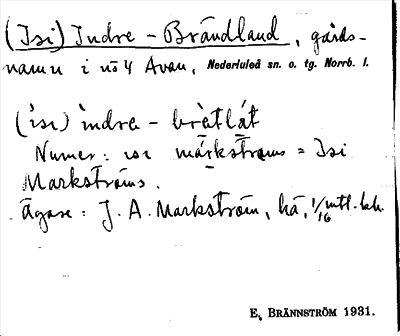 (Isi) Indre - Brändland, gårds-
namn i nö 4 Avan, Nederluleå sn. o. tg. Norrb. l.
(ìsı) ìndrą - brä̀tlát
Numer: ısı märkströms = Isi
Markströms.
Ägare: J. A. Markström, hä, 1/16 mtl.
E. BRÄNNSTRÖM 1931.